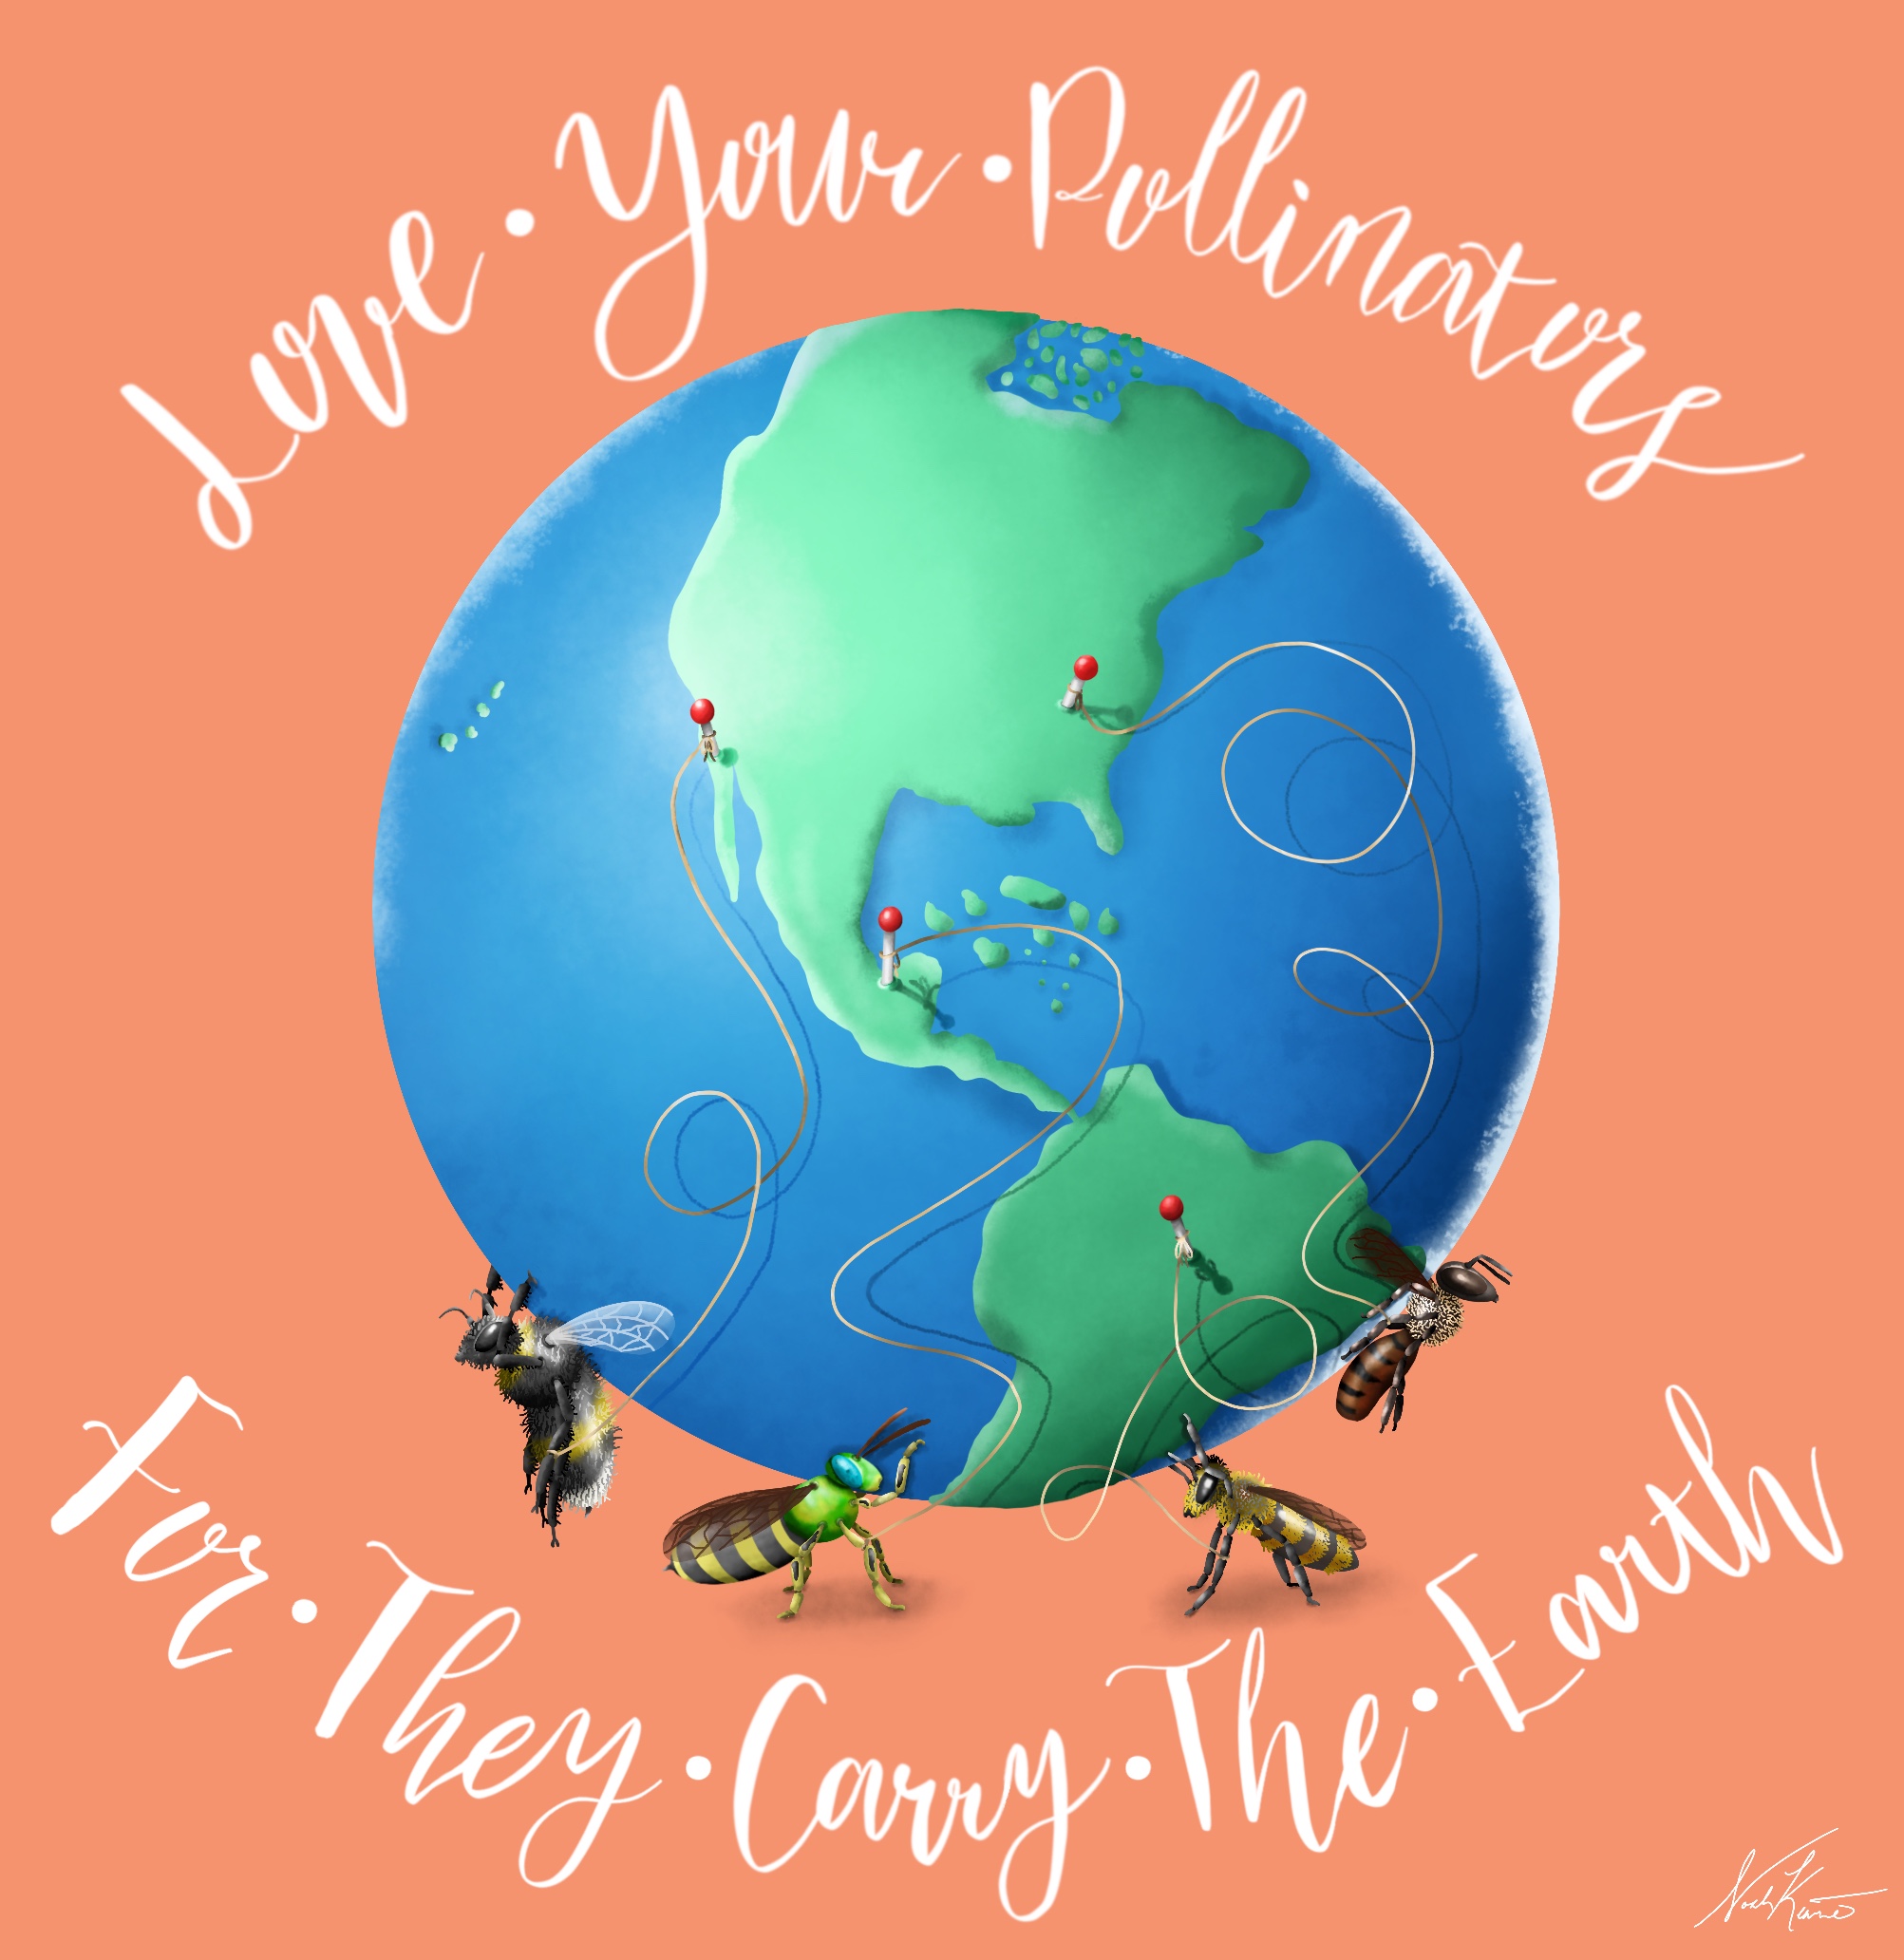 Love · Your · Pollinators
For · They · Carry · The · Earth